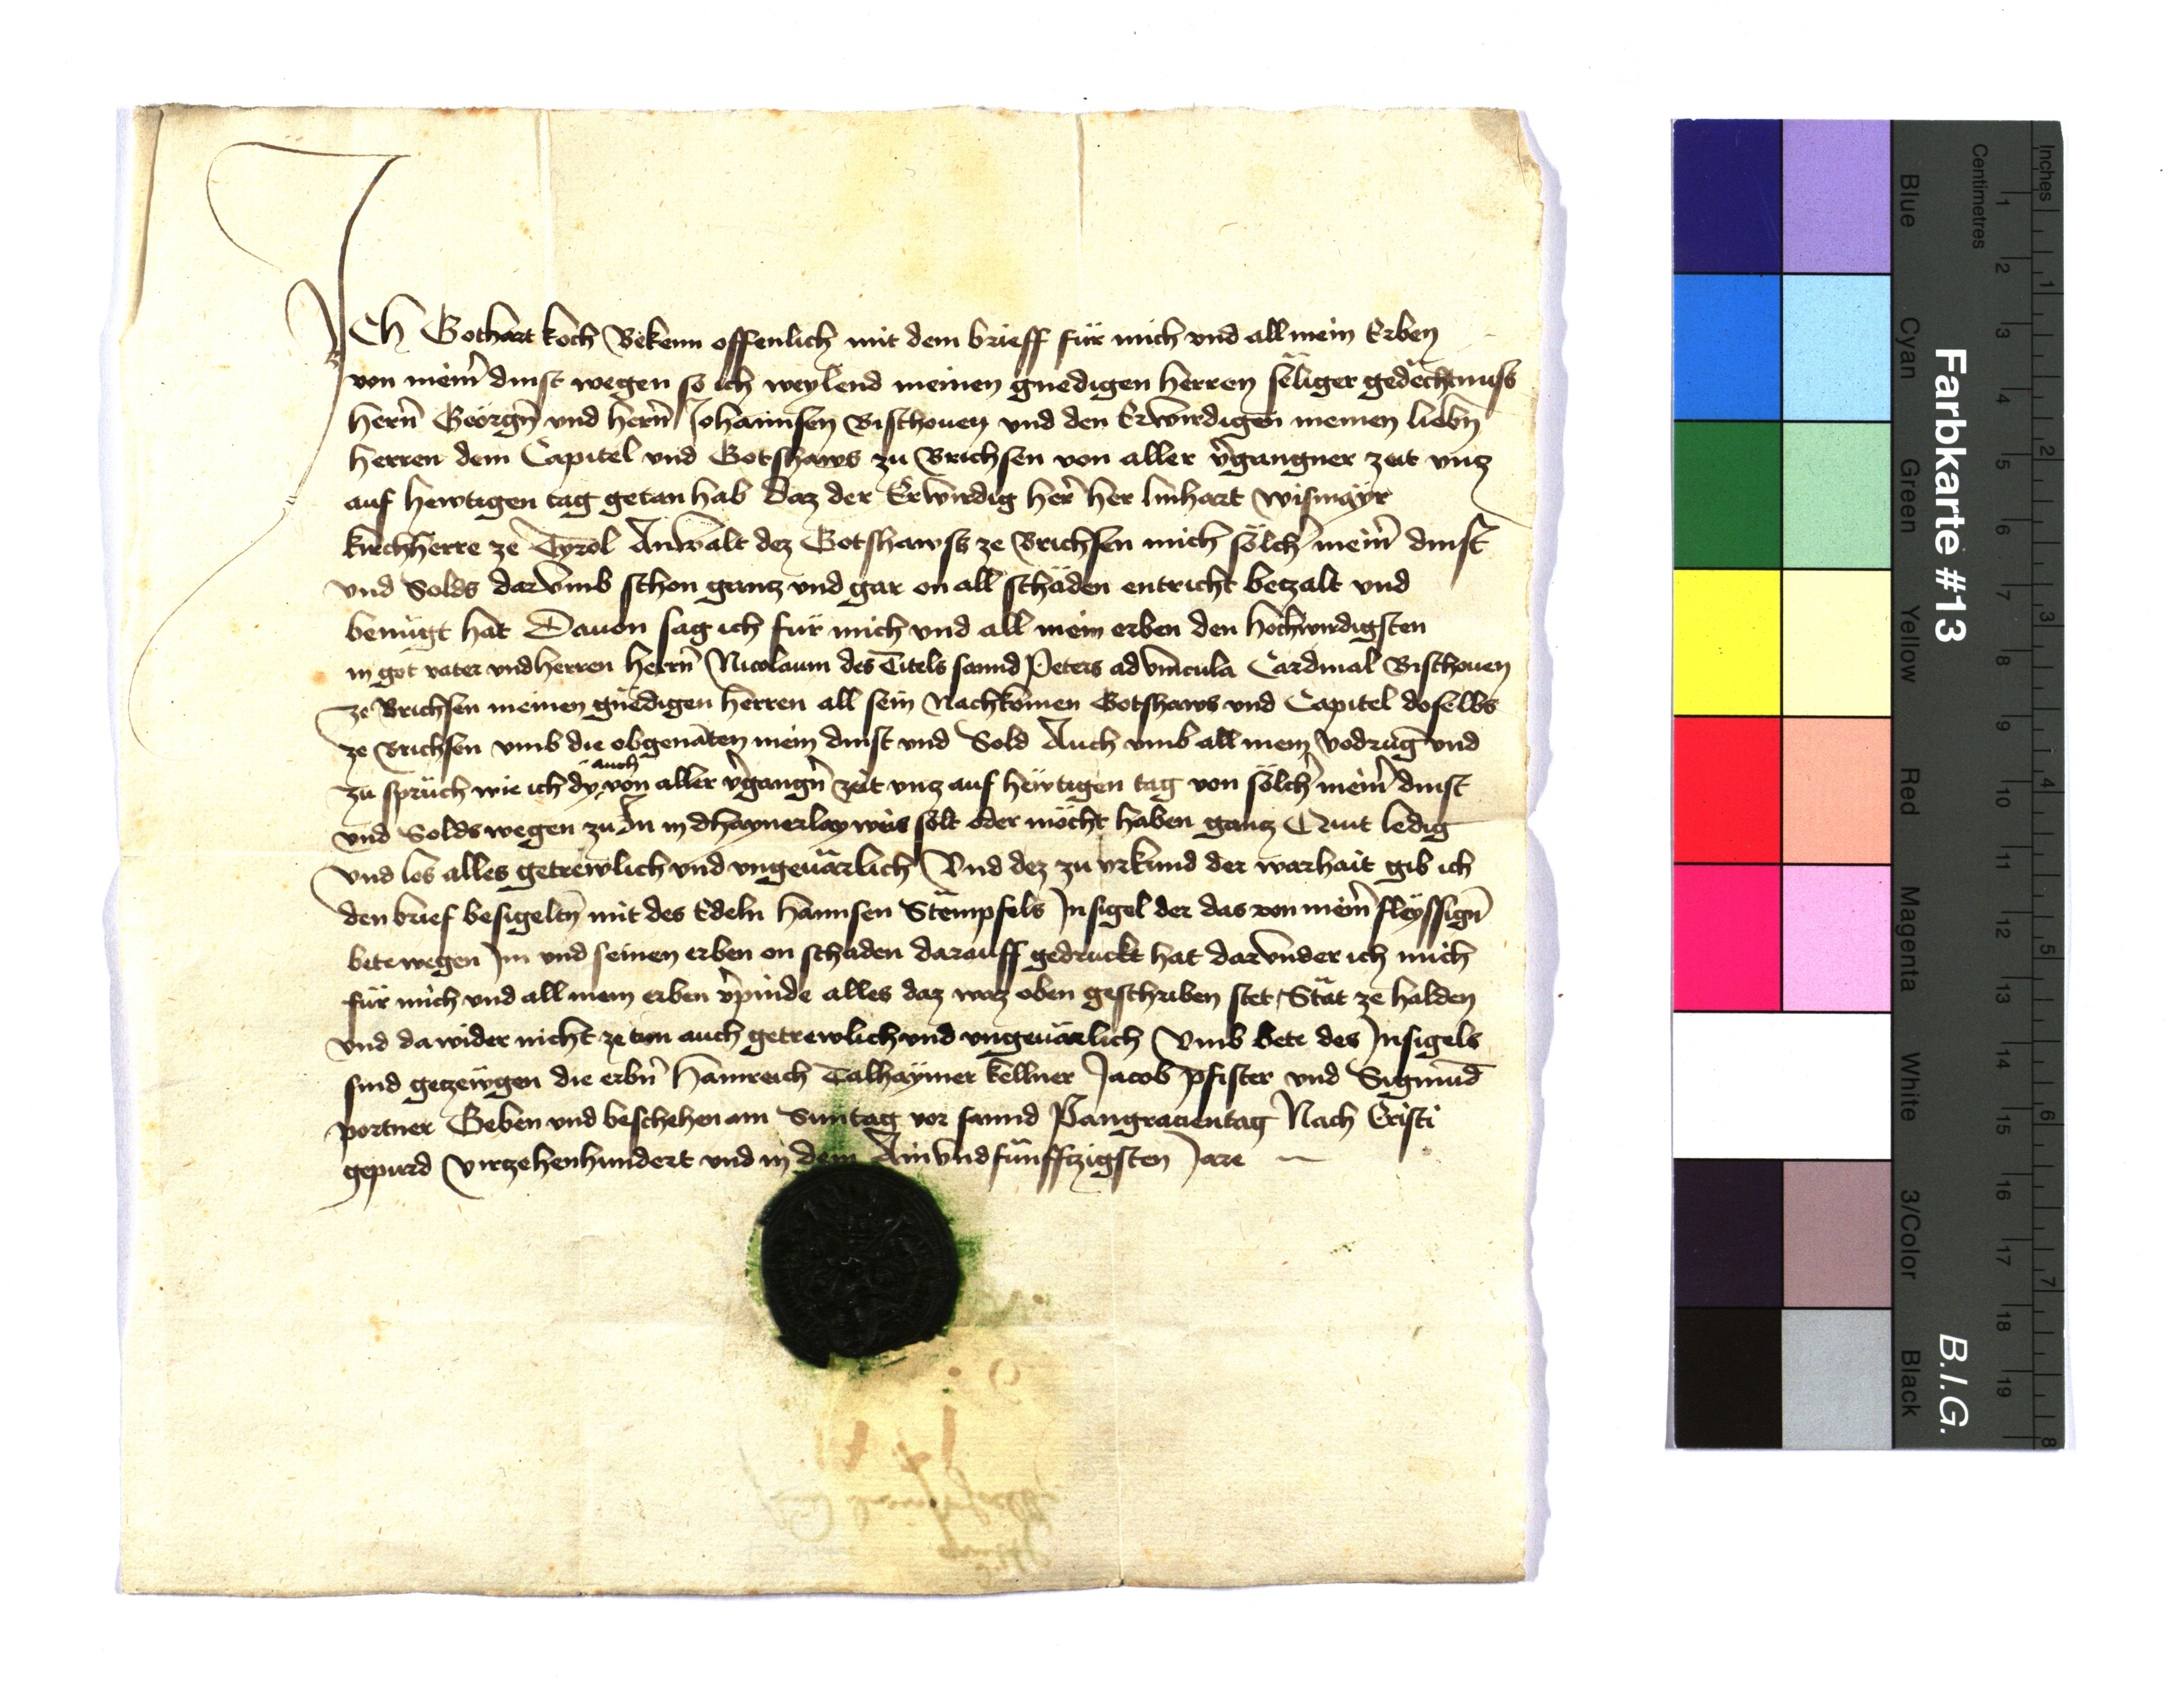 ICh Gothart koch Bekenn offenlich mit dem brieff für mich vnd all mein Erben
von meim̄ dinst wegen so ich weylend meinen gnedigen herren sëliger gedëchtnuss
hern̄ Geörgn̄ vnd hern̄ Johannsen Bischouen vnd den Erwirdigen meinen liebn̄
herren dem Capitel vnd Gotshaws zu Brichsen von aller v̄gangner zeit vnz
auf hewtigen tag getan hab Daz der Erwirdig her̄ her linhart wismayr
kirchherre ze Tyrol Anwalt dez Gotshawss ze Brichsen mich sölch̄ meim̄ dinst
vnd Solds darvmb schon gantz vnd gar on all schäden entricht betzalt vnd
benügt hat Dauon sag ich für mich vnd all mein erben den hochwirdigsten
in got vater vnd herren herrn̄ Nicolaum des Titels sannd Peters ad vincula Cardinal Bischouen
ze Brichsen meinen gnëdigen herren all sein Nachkomen Gotshaws vnd Capitel doselbs
ze Brichsen vmb die obgenāten mein dinst vnd Sold Auch vmb all mein vodrūg vnd
auch
zu sprüch wie ich dy von aller v̄gangn̄ zeit vnz auf hewtigen tag von sölch̄ meim̄ dinst
vnd Solds wegen zu In in dhaynerlay weis solt oder möcht haben gantz Quit ledig
vnd los alles getrewlich vnd vngeuärlich Vnd dez zu vrkund der warhait gib ich
den brief besigeltn̄ mit des Edeln hannsen Stempfels Insigel der das von meim̄ fleyssign̄
bete wegen Im vnd seinen erben on schaden darauff gedruckt hat darvnder ich mich
für mich vnd all mein erben v̄pinde alles daz waz oben geschriben stet Stät ze halden
vnd da wider nicht ze tun auch getrewlich vnd vngeuärlich Vmb bete des Insigels
sind getzewgen die erbn̄ hainreich Talhaymer kellner Jacob pfister vnd Sigmūd
portner Geben vnd beschehen am Suntag vor sannd Pangracientag Nach Cristi
gepurd Virtzehenhundert vnd in dem Ainvndfünffzigsten Jare
Farbkarte #13
B.I.G.
Inches
Centimetres
Blue
Cyan
Green
Yellow
Red
Magenta
White
3/Color
Black
1 2 3 4 5 6 7 8 9 10 11 12 13 14 15 16 17 18 19
1 2 3 4 5 6 7 8